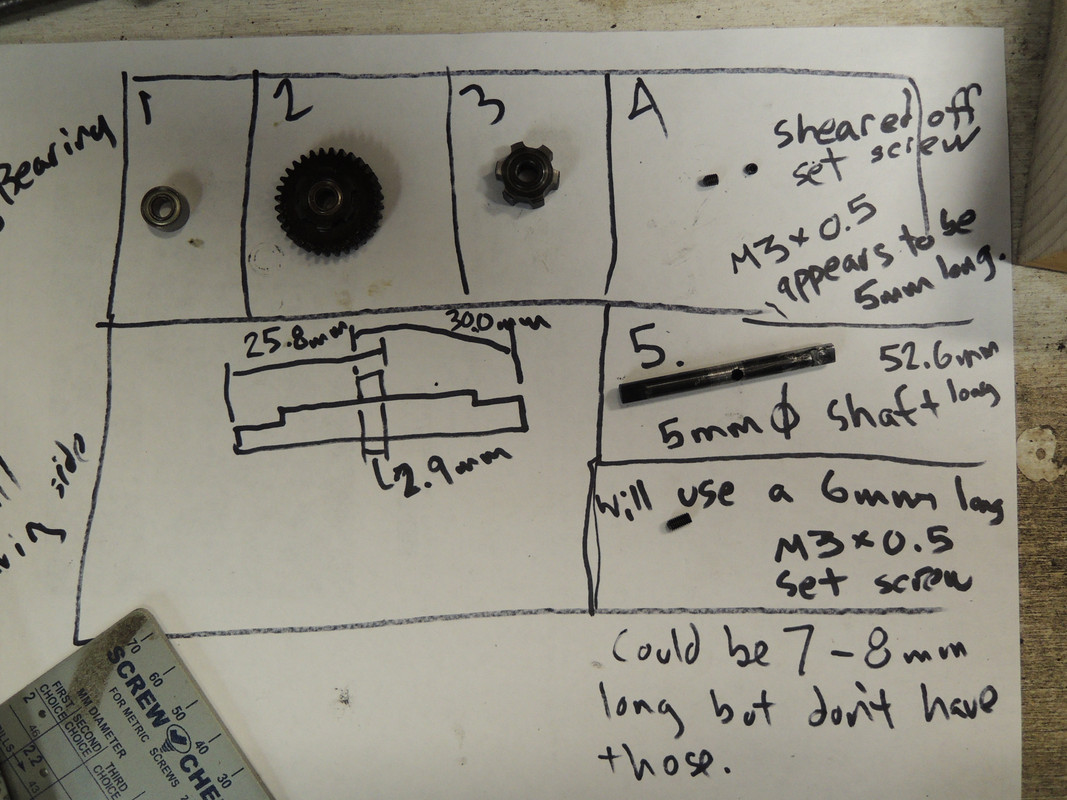 Bearing
1
2
3
4
sheared off
set screw
M3x0.5
appears to be
5mm long.
25.8mm
30.0mm
2.9mm
5.
52.6mm
long
5mm ϕ shaft
side
will use a 6mm long
M3x0.5
set screw
Could be 7-8mm
long but don't have
those.
SCREW CHE
FOR METRIC SCREWS
MM DIAMETER
FIRST CHOICE
SECOND CHOICE
THIRD CHOICE
70 60 50 40 30
2
2.2
46
43